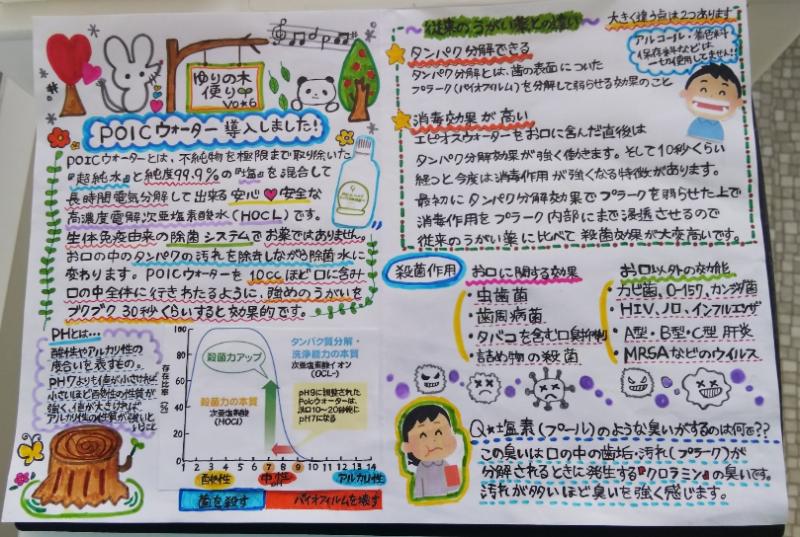 ゆりの木
便り
Vo*6
POICウォーター導入しました!
POICウォーターとは、不純物を極限まで取り除いた
『超純水』と純度99.9%の『塩』を混合して
長時間電気分解して出来る安心♥安全な
高濃度電解次亜塩素酸水(HOCL)です。
生体免疫由来の除菌システムでお薬ではありません。
お口の中のタンパクの汚れを除去しながら除菌水に
変わります。POICウォーターを10ccほど口に含み
口の中全体に行きわたるように、強めのうがいを
ブクブク30秒くらいすると効果的です。
PHとは…
酸性やアルカリ性の
度合いを表すもの。
PH7よりも値が小さければ
小さいほど酸性の性質が
強く、値が大きければ
アルカリ性の性質が強いと
いうこと
存在比率(%)
100
80
60
40
20
0
殺菌力アップ
殺菌力の本質
次亜塩素酸
(HOCl)
タンパク質分解・
洗浄能力の本質
次亜塩素酸イオン
(OCL-)
pH9に調整された
Poicウォーターは、
洗口10〜20秒後に
pH7になる
1 2 3 4 5 6 7 8 9 10 11 12 13 14
酸性 中性 アルカリ性
PH
歯を殺す バイオフィルムを壊す
従来のうがい薬との違い
大きく違う点は2つあります
アルコール・着色料
保存料などは
一切使用してません!!
タンパク分解できる
タンパク分解とは、歯の表面についた
プラーク(バイオフィルム)を分解して弱らせる効果のこと
消毒効果が高い
エピオスウォーターをお口に含んだ直後は
タンパク分解効果が強く働きます。そして10秒くらい
経つと今度は消毒作用が強くなる特徴があります。
最初にタンパク分解効果でプラークを弱らせた上で
消毒作用をプラーク内部にまで浸透させるので
従来のうがい薬に比べて殺菌効果が大変高いです。
殺菌作用
お口に関する効果
・虫歯菌
・歯周病菌
・タバコを含む口臭抑制
・詰め物の殺菌
お口以外の効能
・カビ菌、O-157、カンジダ菌
・HIV、ノロ、インフルエンザ
・A型・B型・C型 肝炎
・MRSAなどのウイルス
Q** 塩素(プール)のような臭いがするのは何で??
この臭いは口の中の歯垢・汚れ(プラーク)が
分解されるときに発生する『クロラミン』の臭いです。
汚れが多いほど臭いを強く感じます。